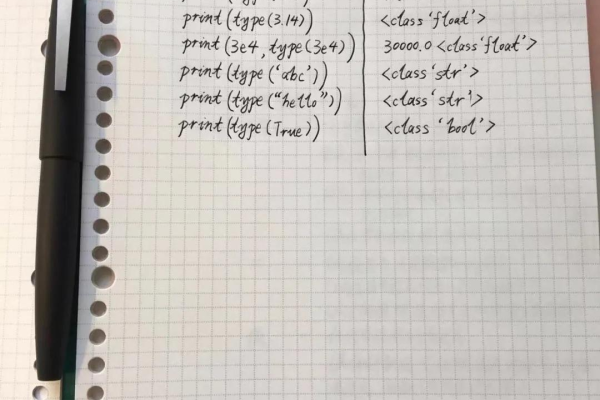 print(type(3.14)) <class 'float'>
print(3e4, type(3e4)) 30000.0 <class 'float'>
print(type('abc')) <class 'str'>
print(type("hello")) <class 'str'>
print(type(True)) <class 'bool'>